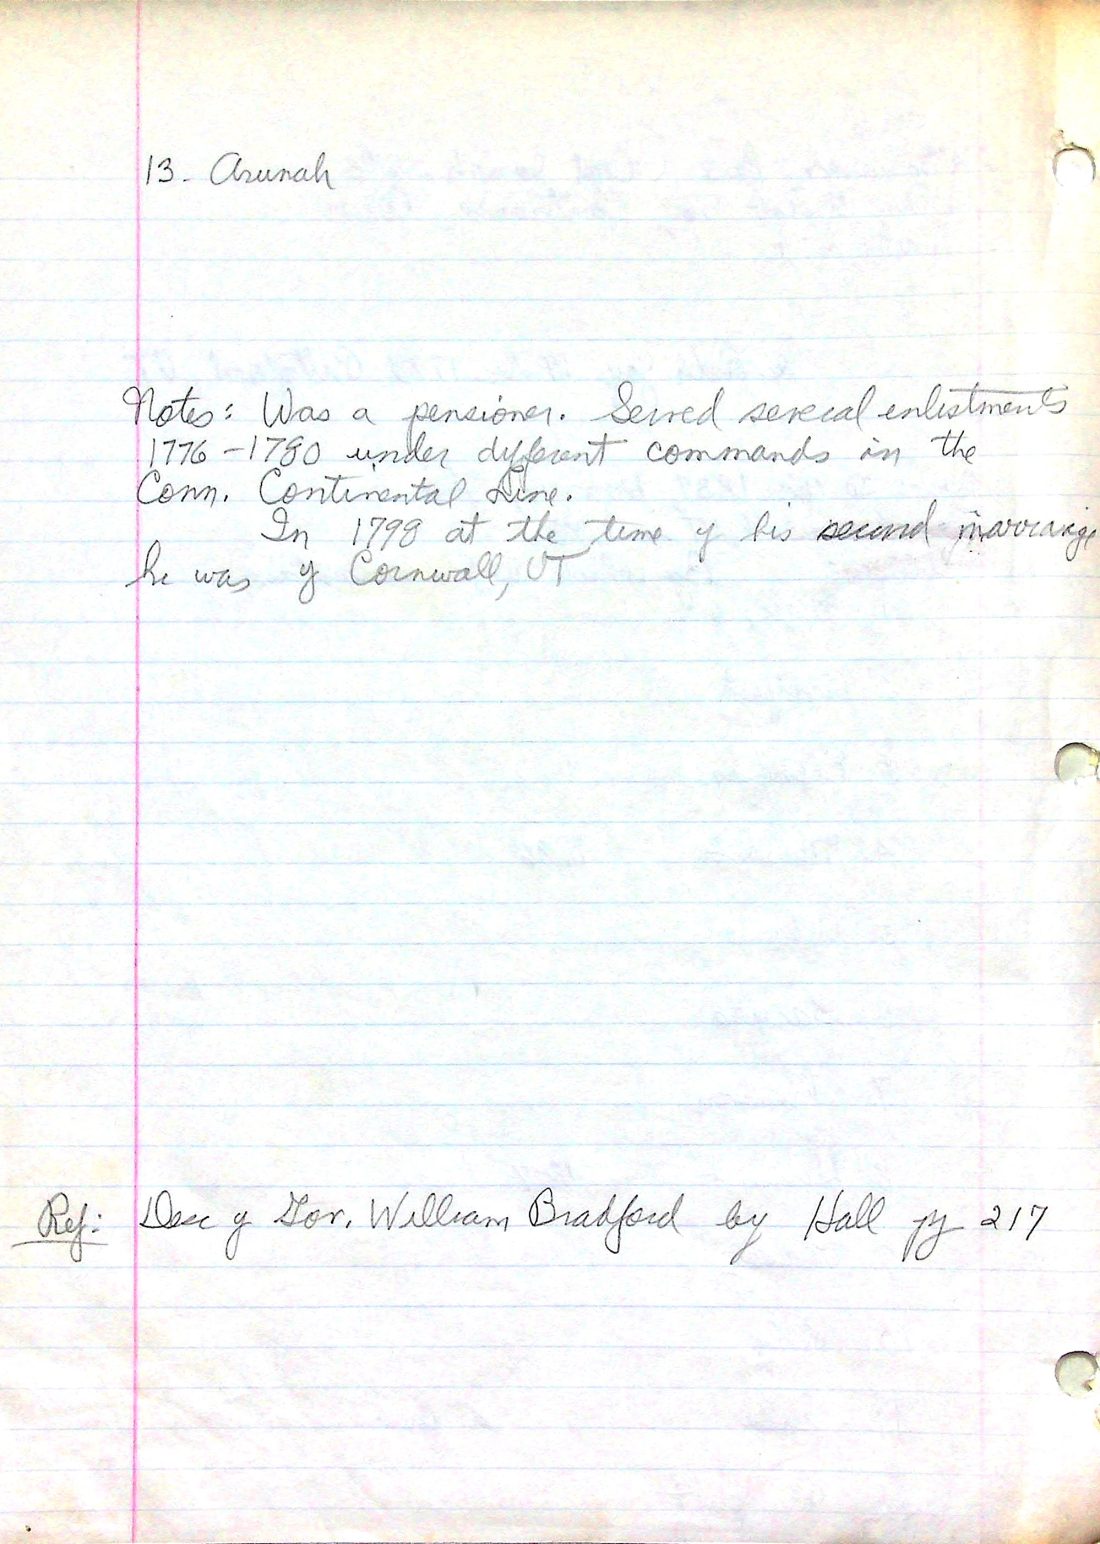 13. Arunah
Notes: Was a pensioner. Served several enlistments
1776-1780 under different commands in the
Conn. Continental Line.
In 1798 at the time of his second marriage
he was of Cornwall, VT
Ref: Desc of Gov. William Bradford by Hall pg 217